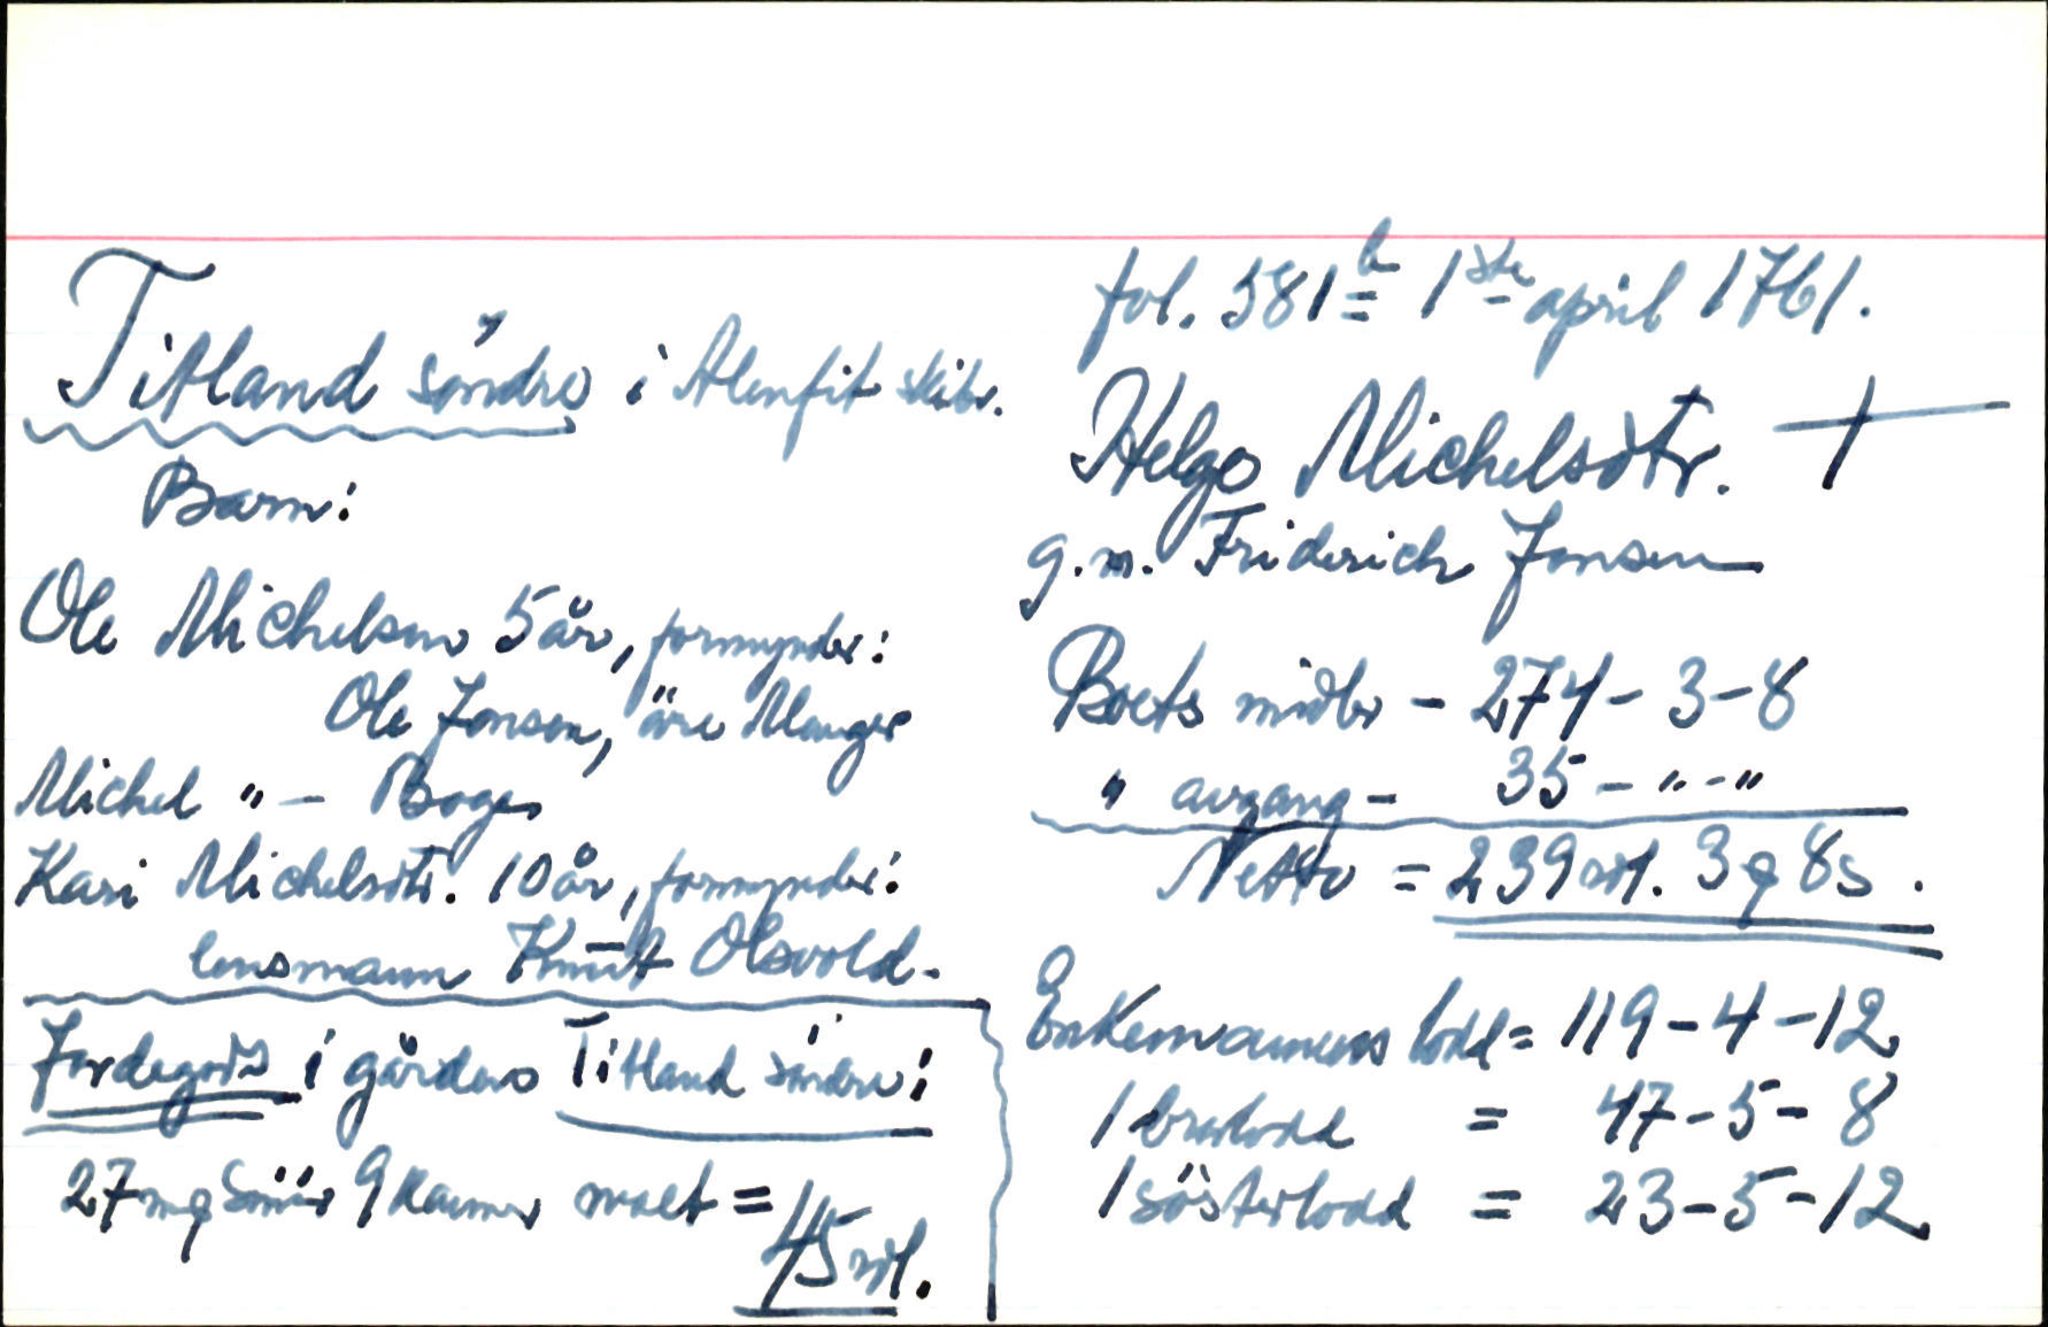 Titland söndre i Alenfit skibr.
Barn:
Ole Michelsen 5 år, formynder:
Ole Jonsen, öre Manger
Michel " - Boge
Kari Michelsdtr. 10 år, formynder:
lensmann Knut Olsvold.
Jordegods i gården Titland söndre:
27 mg Smör 9 Kanner malt =
45 rdl.
fol. 581b 1ste april 1761.
Helge Michelsdtr. †
g.m. Friderich Jonsen
Boets midler - 274 - 3 - 8
" avgang - 35 - " - "
Netto = 239 rdl. 3 q 8 s.
Enkemannens lodd = 119 - 4 - 12
1 brorlodd = 47 - 5 - 8
1 sösterlodd = 23 - 5 - 12